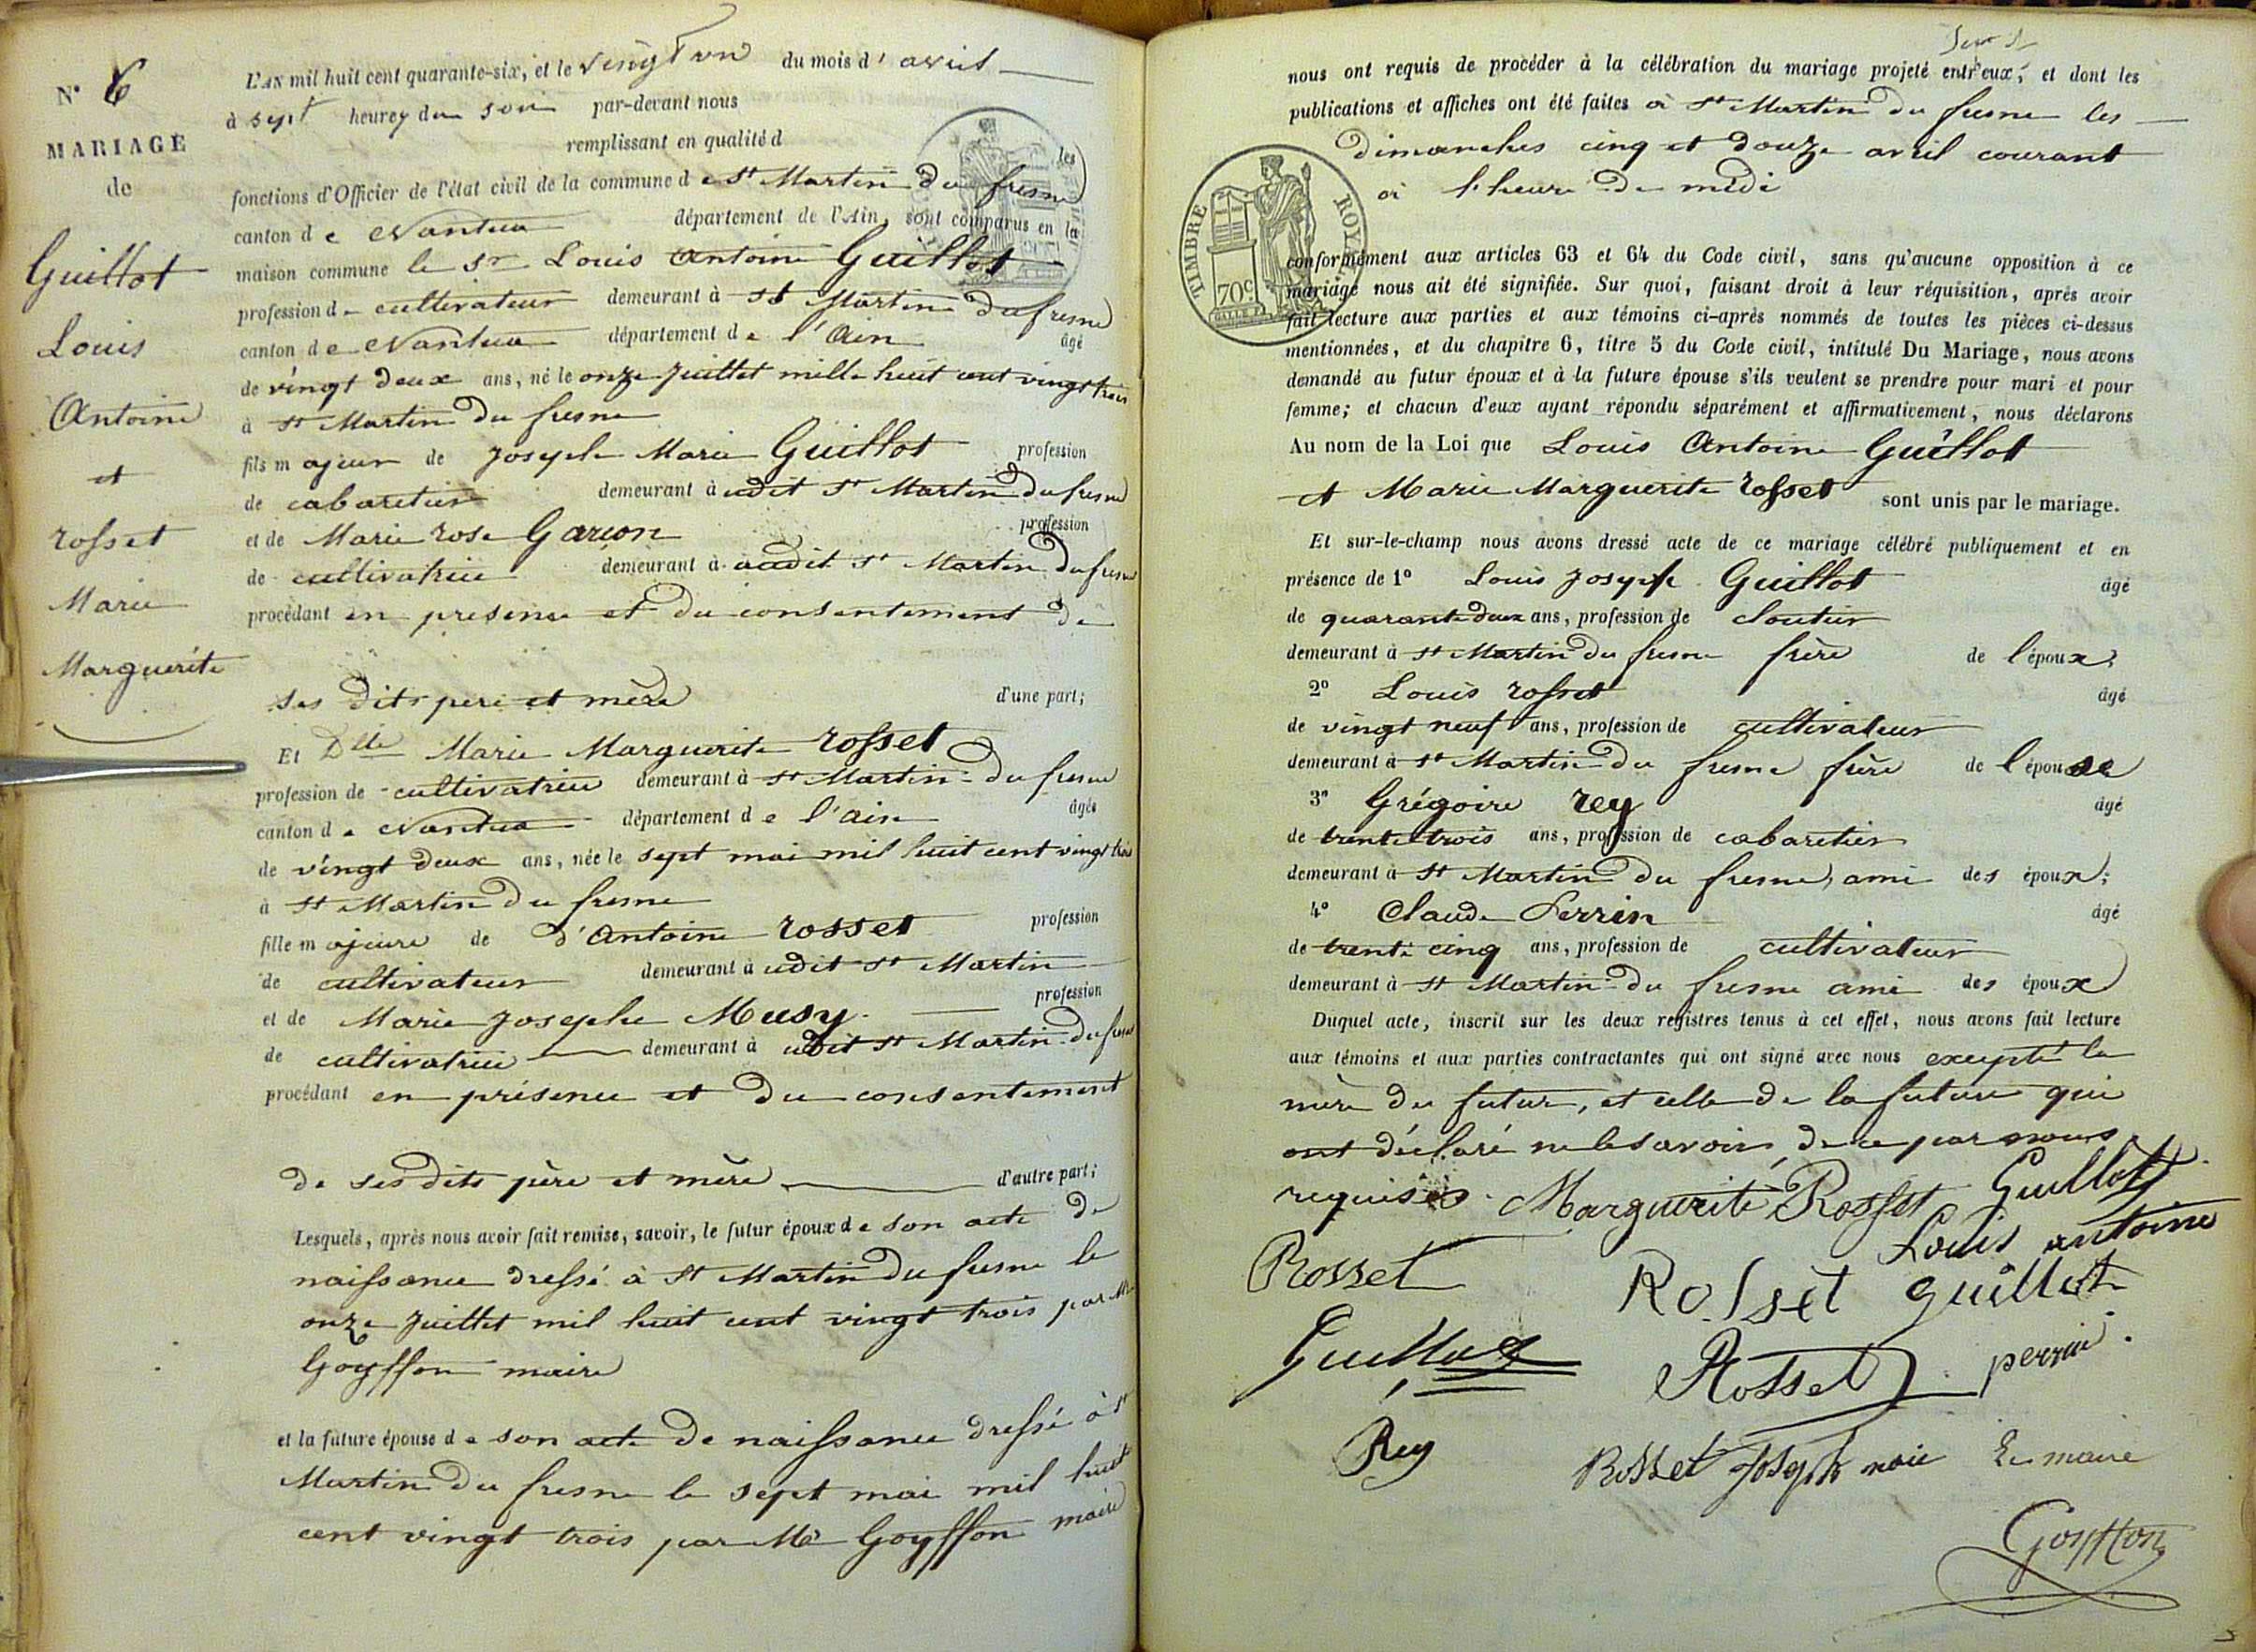 N° 6
MARIAGE
de
Guillot
Louis
Antoine
et
rosset
Marie
Marguerite
L'AN mil huit cent quarante-six, et le vingt un du mois d'avril
à sept heures du soir par-devant nous
remplissant en qualité d les
fonctions d'Officier de l'état civil de la commune de St Martin du fresne
canton de Nantua département de l'Ain, sont comparus en la
maison commune le sr Louis Antoine Guillot
profession de cultivateur demeurant à St Martin du fresne
canton de Nantua département de l'Ain âgé
de vingt deux ans, né le onze juillet mille huit cent vingt trois
à St Martin du fresne
fils majeur de joseph Marie Guillot profession
de cabaretier demeurant à udit St Martin du fresne
et de Marie rose Garcon profession
de cultivatrice demeurant à audit St Martin du fresne
procédant en presence et du consentement de
ses dits pere et mère d'une part;
Et Dlle Marie Marguerite rosset
profession de cultivatrice demeurant à St Martin du fresne
canton de Nantua département de l'ain âgée
de vingt deux ans, née le sept mai mil huit cent vingt trois
à St Martin du fresne
fille majeure de d'Antoine rosset profession
de cultivateur demeurant à udit St Martin
et de Marie josephe Musy profession
de cultivatrice demeurant à udit St Martin du fresne
procédant en présence et du consentement
de ses dits père et mère d'autre part;
Lesquels, après nous avoir fait remise, savoir, le futur époux de son acte de
naissance dressé à St Martin du fresne le
onze juillet mil huit cent vingt trois par Mr
Goyffon maire
et la future épouse de son acte de naissance dressé à St
Martin du fresne le sept mai mil huit
cent vingt trois par Mr Goyffon maire
nous ont requis de procéder à la célébration du mariage projeté entr'eux, et dont les
publications et affiches ont été faites à St Martin du fresne les
dimanches cinq et douze avril courant
à l'heure de midi
TIMBRE ROYAL
70c
conformément aux articles 63 et 64 du Code civil, sans qu'aucune opposition à ce
mariage nous ait été signifiée. Sur quoi, faisant droit à leur réquisition, après avoir
fait lecture aux parties et aux témoins ci-après nommés de toutes les pièces ci-dessus
mentionnées, et du chapitre 6, titre 5 du Code civil, intitulé Du Mariage, nous avons
demandé au futur époux et à la future épouse s'ils veulent se prendre pour mari et pour
femme; et chacun d'eux ayant répondu séparément et affirmativement, nous déclarons
Au nom de la Loi que Louis Antoine Guillot
et Marie Marguerite rosset sont unis par le mariage.
Et sur-le-champ nous avons dressé acte de ce mariage célébré publiquement et en
présence de 1° Louis joseph Guillot âgé
de quarante deux ans, profession de cloutier
demeurant à St Martin du fresne frère de l'époux;
2° Louis rosset âgé
de vingt neuf ans, profession de cultivateur
demeurant à St Martin du fresne frère de l'épouse
3° Grégoire rey âgé
de trente trois ans, profession de cabaretier
demeurant à St Martin du fresne, ami des époux;
4° Claude Perrin âgé
de trente cinq ans, profession de cultivateur
demeurant à St Martin du fresne ami des époux
Duquel acte, inscrit sur les deux registres tenus à cet effet, nous avons fait lecture
aux témoins et aux parties contractantes qui ont signé avec nous excepté la
mère du futur, et celle de la future qui
ont déclaré ne le savoir, de ce par nous
requises. Marguerite Rosset Guillot
Louis antoine
Rosset Rosset guillot
Guillot Rosset perrin
Rey Rosset Joseph marie Le maire
Goyffon